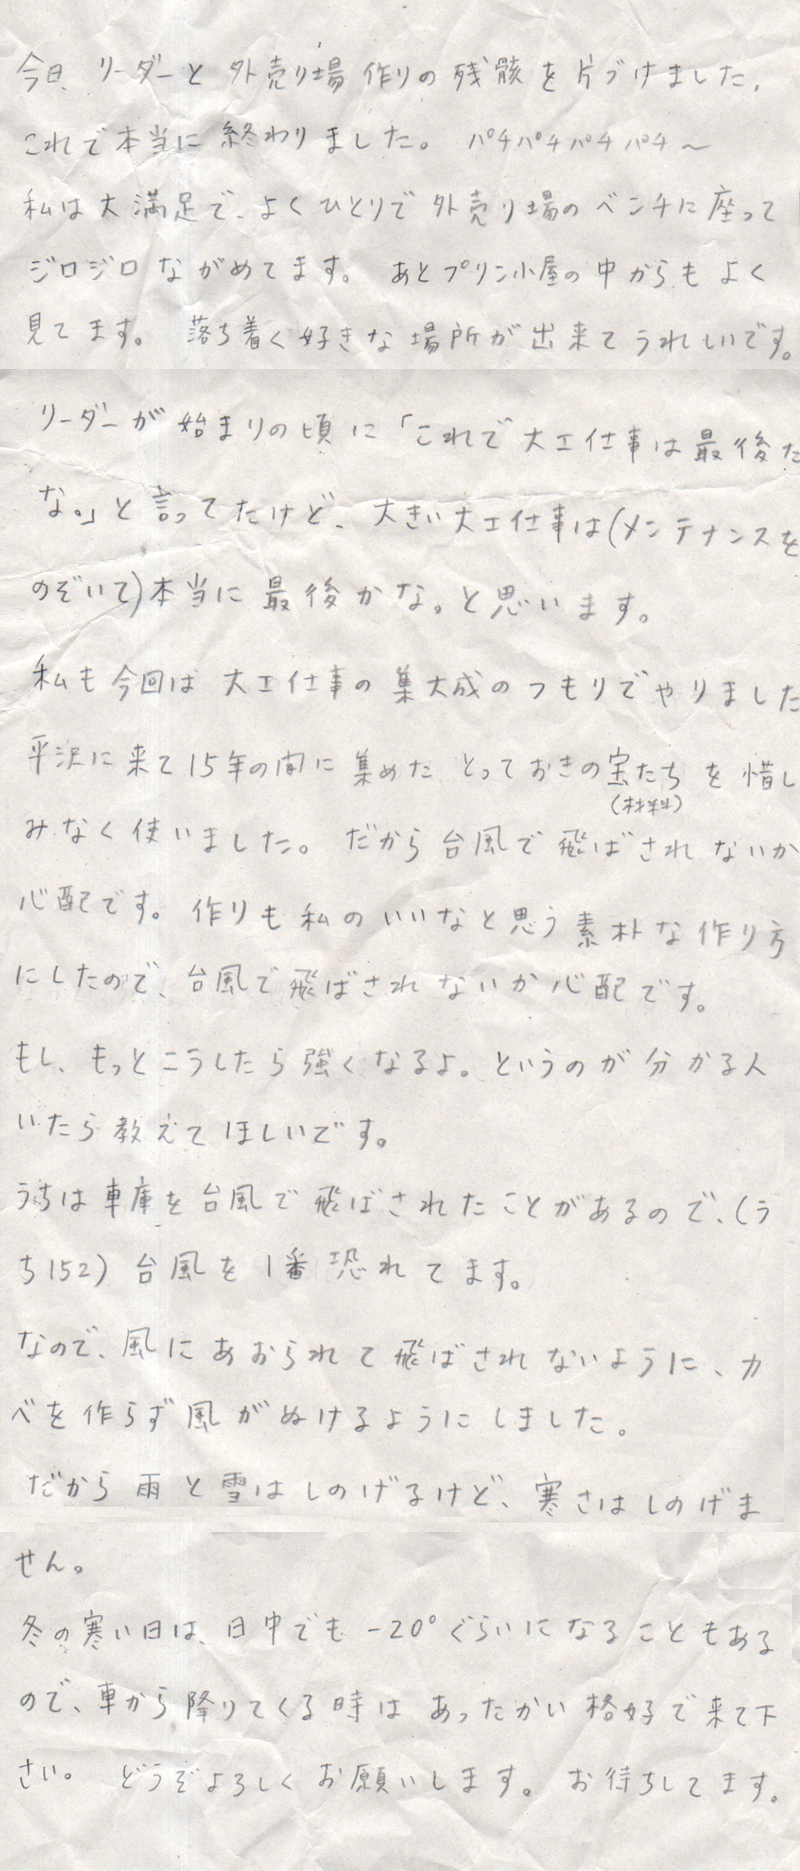 今日、リーダーと外売り場作りの残骸を片づけました。
これで本当に終わりました。パチパチパチパチ～
私は大満足で、よくひとりで外売り場のベンチに座って
ジロジロながめてます。あとプリン小屋の中からもよく
見てます。落ち着く好きな場所が出来てうれしいです。
リーダーが始まりの頃に「これで大工仕事は最後だ
な。」と言ってたけど、大きい大工仕事は(メンテナンスを
のぞいて)本当に最後かな。と思います。
私も今回は大工仕事の集大成のつもりでやりました
平沢に来て15年の間に集めたとっておきの宝たちを惜し
(材料)
みなく使いました。だから台風で飛ばされないか
心配です。作りも私のいいなと思う素朴な作り方
にしたので、台風で飛ばされないか心配です。
もし、もっとこうしたら強くなるよ。というのが分かる人
いたら教えてほしいです。
うちは車庫を台風で飛ばされたことがあるので、(う
ち152)台風を1番恐れてます。
なので、風にあおられて飛ばされないように、カ
ベを作らず風がぬけるようにしました。
だから雨と雪はしのげるけど、寒さはしのげま
せん。
冬の寒い日は、日中でも-20°ぐらいになることもある
ので、車から降りてくる時はあったかい格好で来て下
さい。どうぞよろしくお願いします。お待ちしてます。